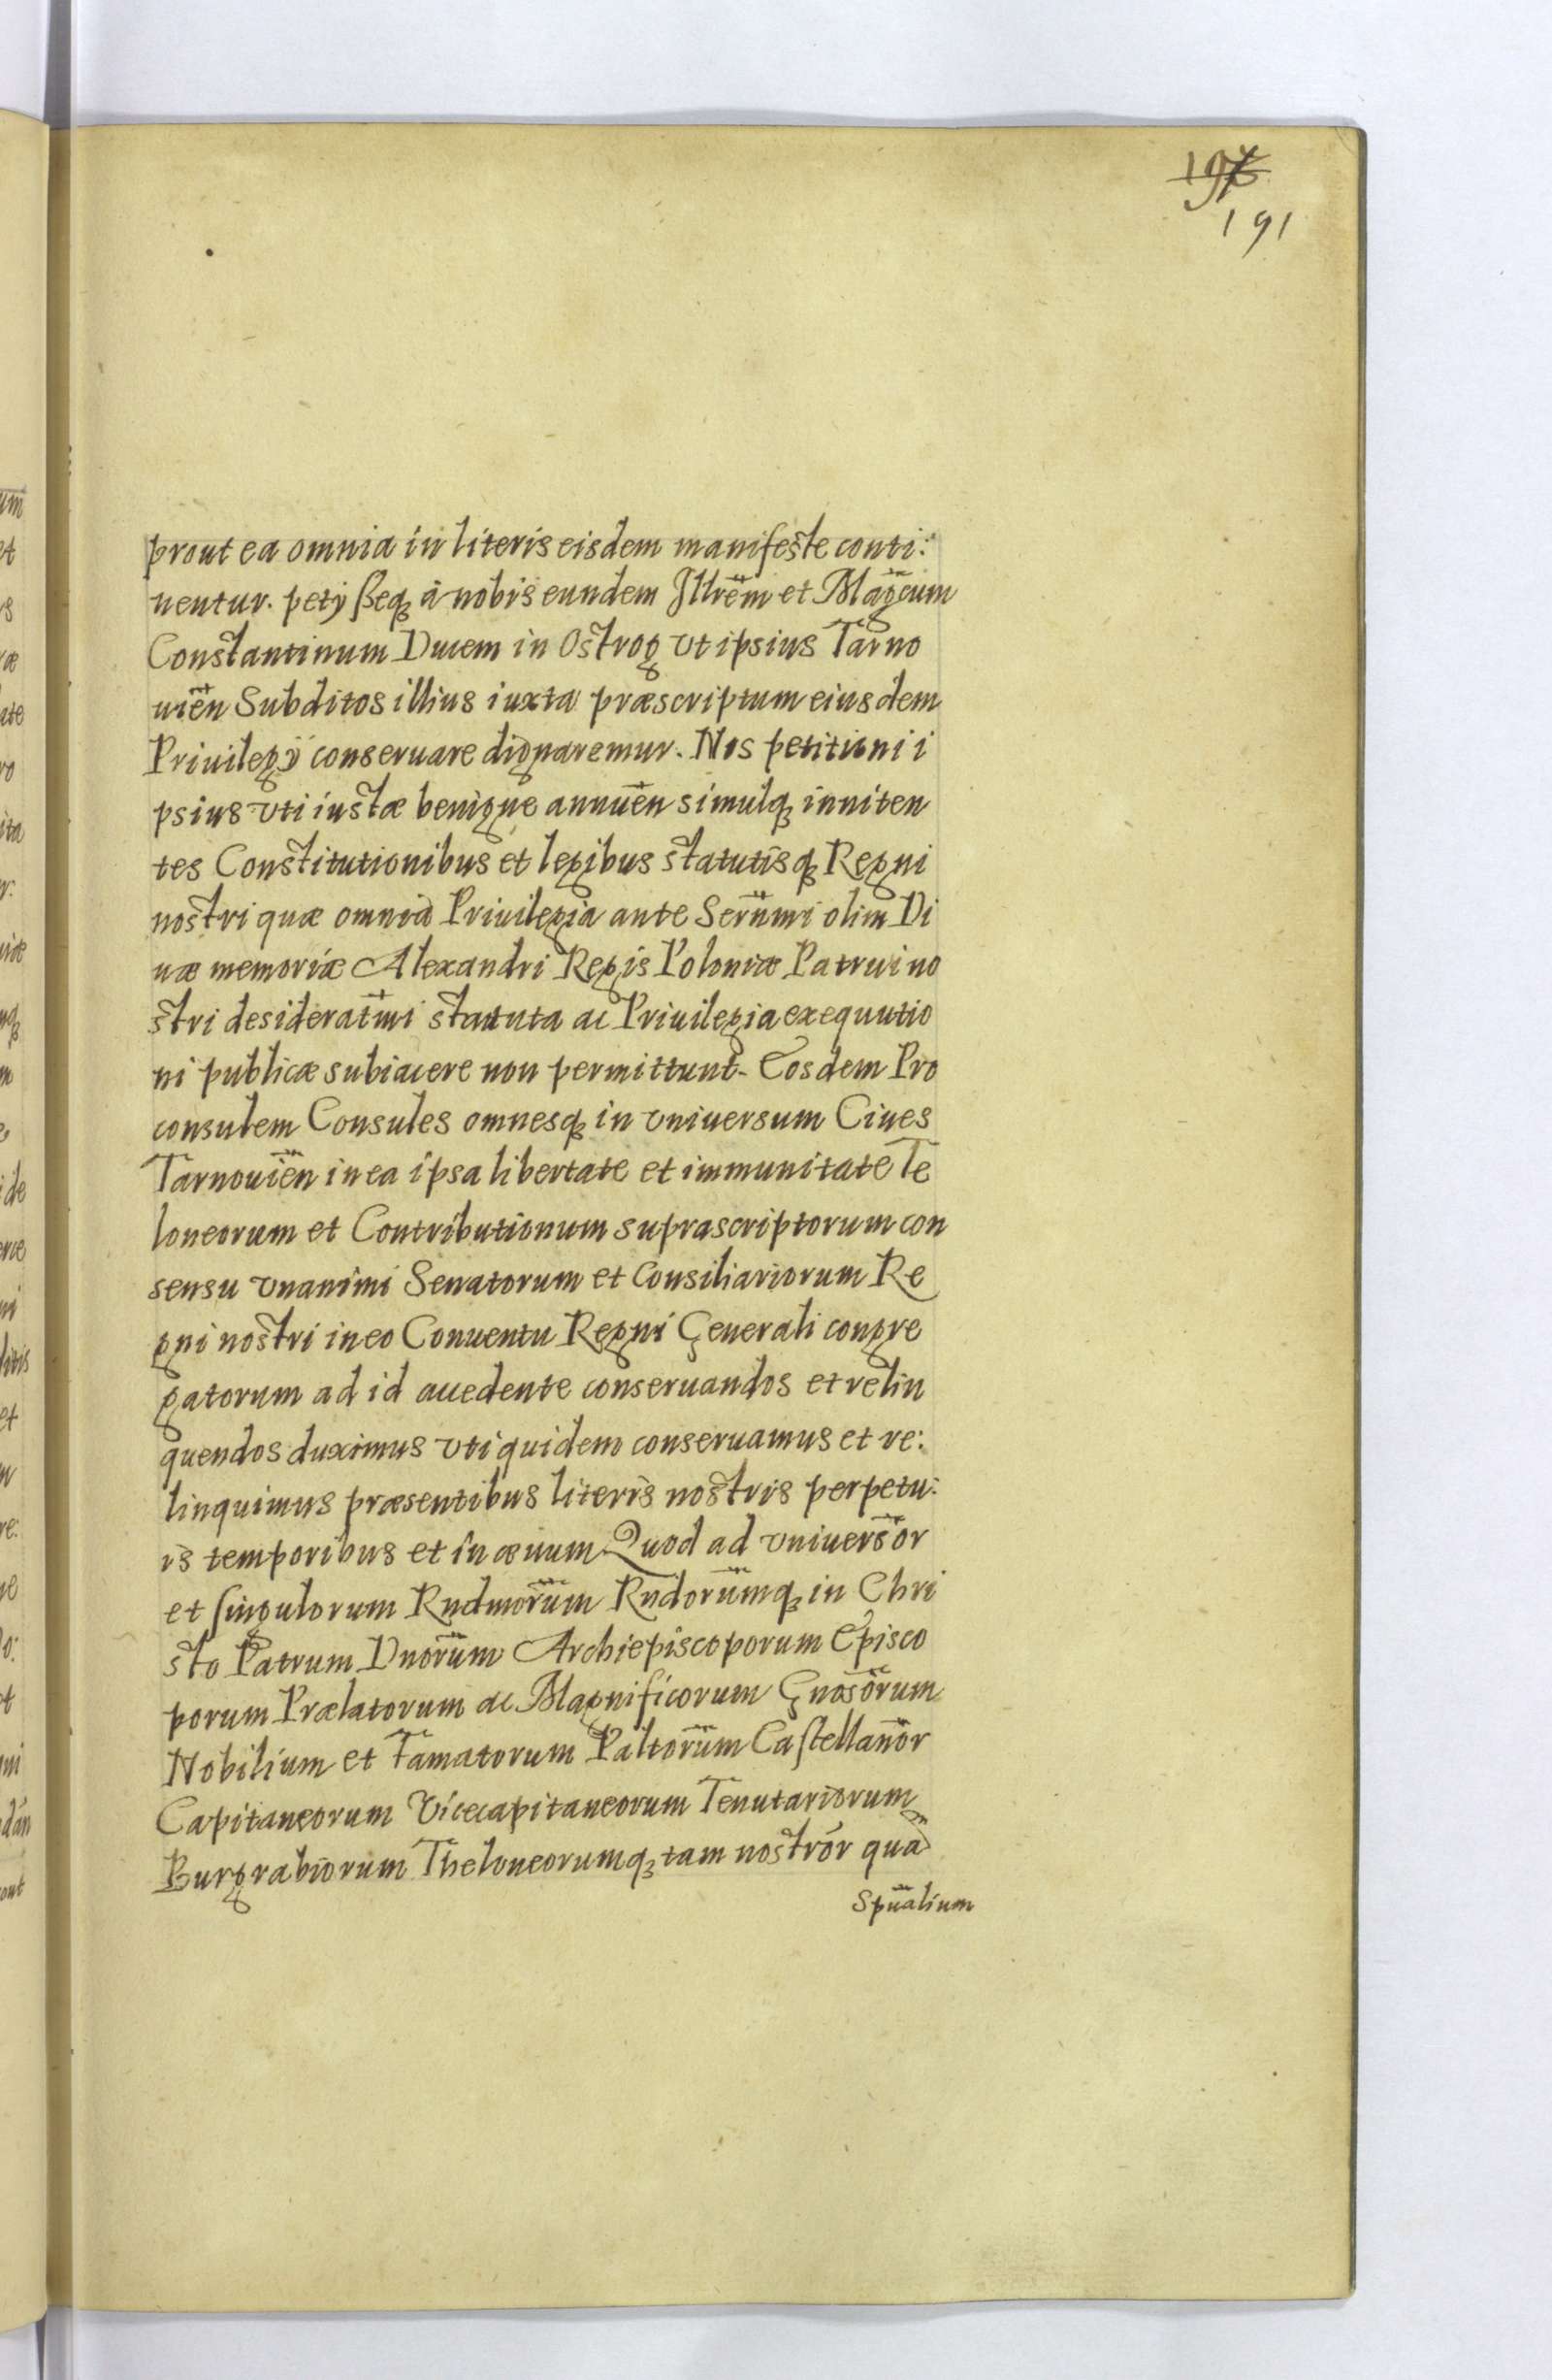 191
prout ea omnia in literis eisdem manifeste conti:
nentur. petÿsseq₃ a nobis eundem Illrem̄ et Magc̄um
Constantinum Ducem in Ostrog vt ipsius Tarno
uien̄ Subditos illius iuxta præscriptum eiusdem
Priuilegÿ conseruare dignaremur. Nos petitioni i
psius vti iustæ benigne annuen̄ simulq₃ inniten
tes Constitutionibus et legibus statutisq₃ Regni
nostri quæ omnia Priuilegia ante Serm̄i olim Di
uæ memoriæ Alexandri Regis Poloniæ Patrui no
stri desideratmī statuta ac Priuilegia exequutio
ni publicæ subiacere non permittunt. Eosdem Pro
consulem Consules omnesq₃ in vniuersum Ciues
Tarnouien̄ in ea ipsa libertate et immunitate Te
loneorum et Contributionum suprascriptorum con
sensu vnanimi Senatorum et Consiliariorum Re
gni nostri in eo Conuentu Regni Generali congre
gatorum ad id accedente conseruandos et relin
quendos duximus vti quidem conseruamus et re:
linquimus præsentibus literis nostris perpetu:
is temporibus et in æuum Quod ad vniuersor̄
et singulorum Rndmorūm Rndorūmq₃ in Chri
sto Patrum Dnorūm Archiepiscoporum Episco
porum Prælatorum ac Magnificorum Gnosōrum
Nobilium et Famatorum Paltorūm Castellanōr
Capitaneorum Vicecapitaneorum Tenutariorum
Burgrabiorum Theloneorumq₃ tam nostrór quā
Spūalium